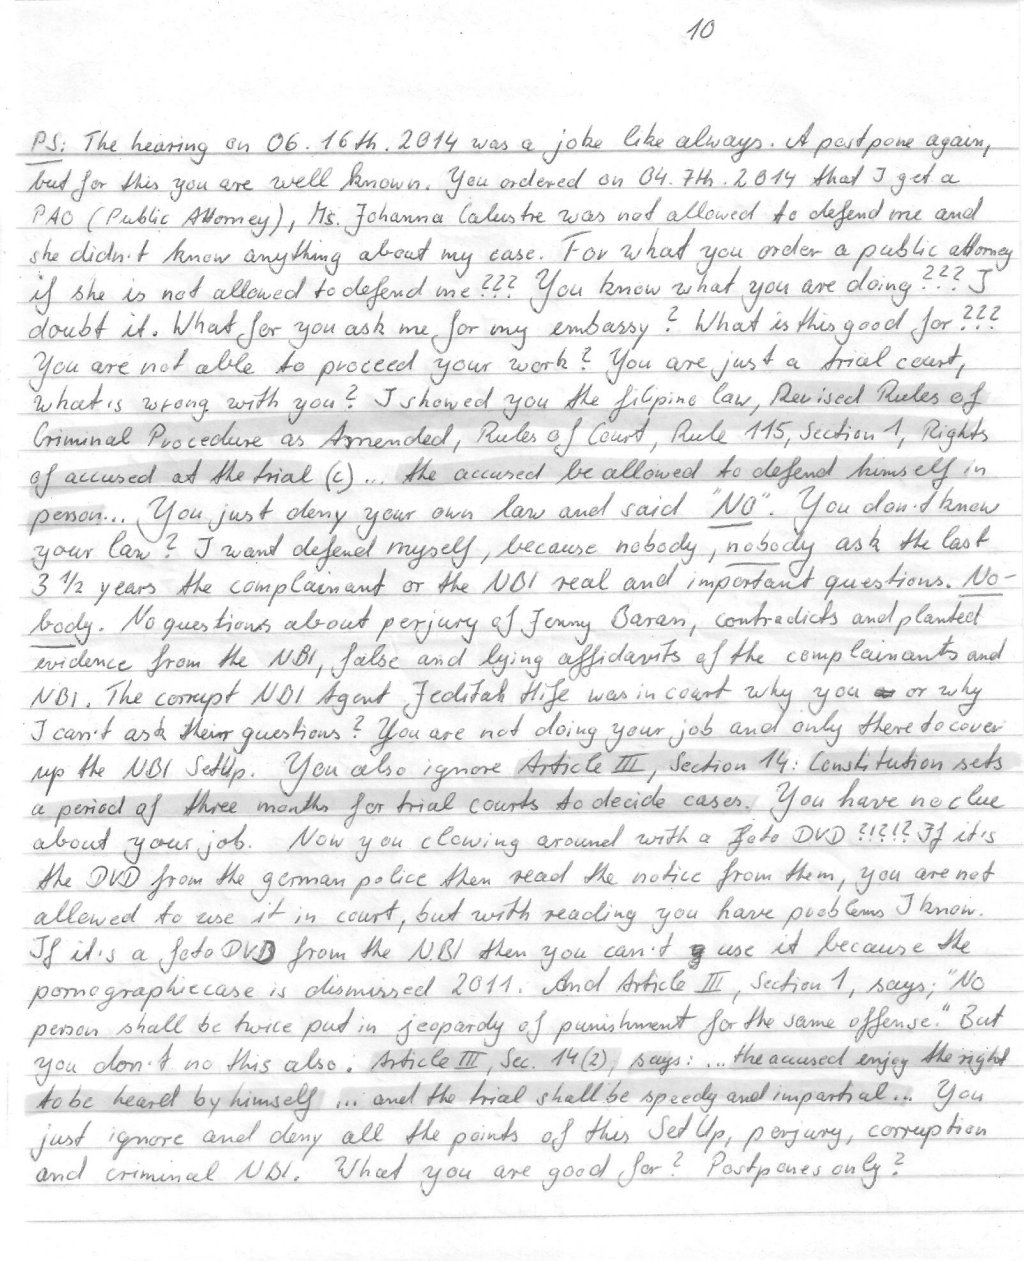 10
PS: The hearing on 06. 16th. 2014 was a joke like always. A postpone again,
but for this you are well known. You ordered on 04. 7th. 2014 that I get a
PAO (Public Attorney), Ms. Johanna Calustre was not allowed to defend me and
she didn't know anything about my case. For what you order a public attorney
if she is not allowed to defend me??? You know what you are doing??? I
doubt it. What for you ask me for my embassy? What is this good for???
You are not able to proceed your work? You are just a trial court,
what is wrong with you? I showed you the filipino law, Revised Rules of
Criminal Procedure as Amended, Rules of Court, Rule 115, Section 1, Rights
of accused at the trial (c)... the accused be allowed to defend himself in
person... You just deny your own law and said "NO". You don't know
your law? I want defend myself, because nobody, nobody ask the last
3 1/2 years the complainant or the NBI real and important questions. No-
body. No questions about perjury of Jenny Baran, contradicts and planted
evidence from the NBI, false and lying affidavits of the complainants and
NBI. The corrupt NBI Agent was in court why you or why
I can't ask them questions? You are not doing your job and only there to cover
up the NBI SetUp. You also ignore Article III, Section 14: Constitution sets
a period of three months for trial courts to decide cases. You have no clue
about your job. Now you clowing around with a foto DVD ?!?!? If it's
the DVD from the german police then read the notice from them, you are not
allowed to use it in court, but with reading you have problems I know.
If it's a foto DVD from the NBI then you can't use it because the
pornographic case is dismissed 2011. And Article III, Section 1, says; "No
person shall be twice put in jeopardy of punishment for the same offense." But
you don't no this also. Article III, Sec. 14(2), says: ... the accused enjoy the right
to be heard by himself ... and the trial shall be speedy and impartial... You
just ignore and deny all the points of this SetUp, perjury, corruption
and criminal NBI. What you are good for? Postpones only?